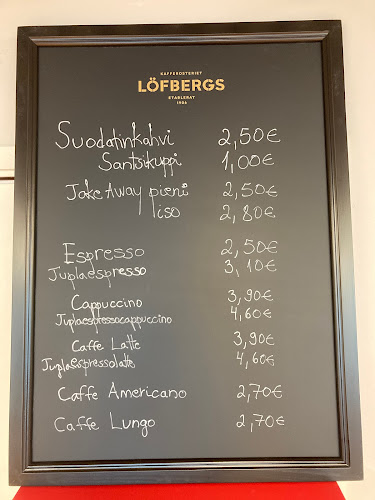 KAFFEROSTERIET
LÖFBERGS
ETABLERAT
1906
Suodatinkahvi 2,50€
Santsikuppi 1,00€
Take Away pieni 2,50€
iso 2,80€
Espresso 2,50€
Tuplaespresso 3,10€
Cappuccino 3,90€
Tuplaespressocappuccino 4,60€
Caffe Latte 3,90€
Tuplaespressolatte 4,60€
Caffe Americano 2,70€
Caffe Lungo 2,70€